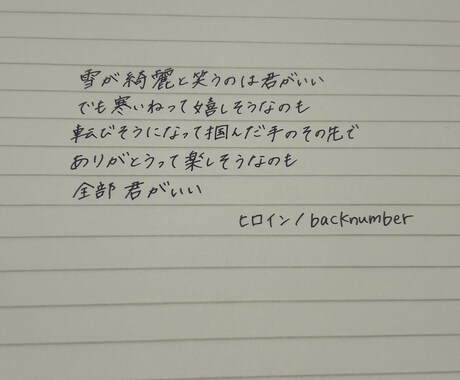 雪が綺麗と笑うのは君がいい
でも寒いねって嬉しそうなのも
転びそうになって掴んだ手のその先で
ありがとうって楽しそうなのも
全部 君がいい
ヒロイン / backnumber